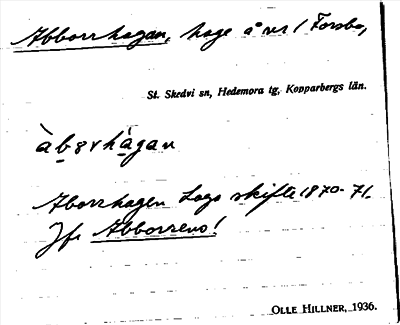 Abborrhagan, hage å nr 1 Forsbo,
St. Skedvi sn, Hedemora tg, Kopparbergs län.
àbɘrhàgan
Aborrhagen Laga skifte 1870-71.
Jfr Abborreno!
OLLE HILLNER, 1936.